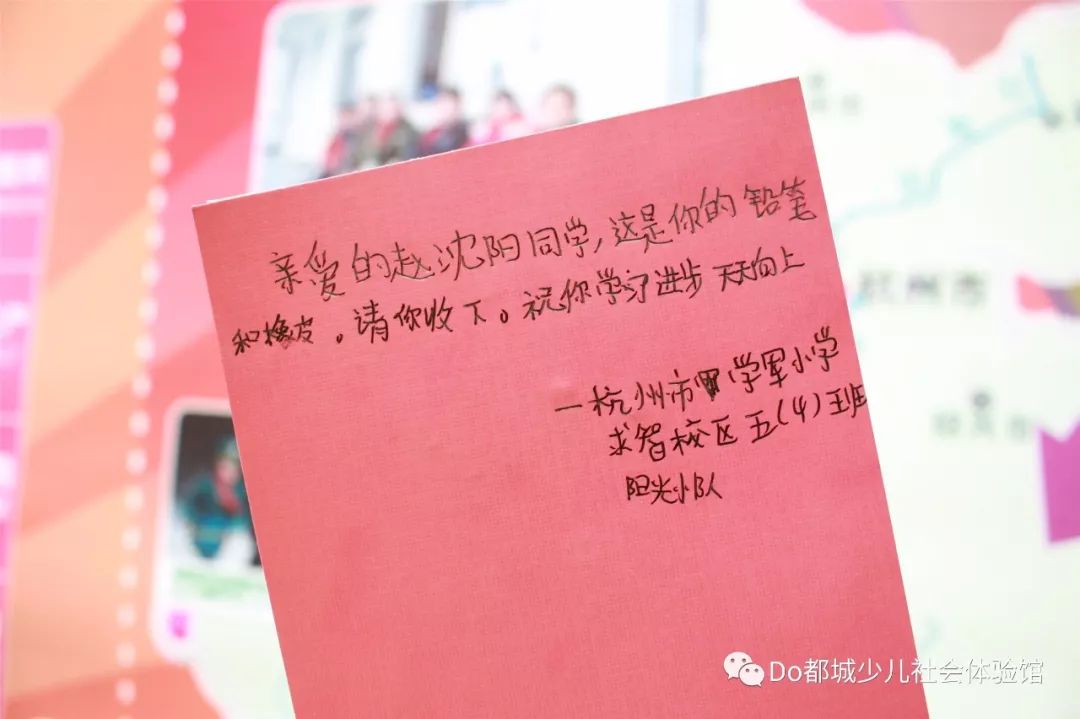 亲爱的赵沈阳同学,这是你的铅笔
和橡皮。请你收下。祝你学习进步 天天向上
—杭州市学军小学
求智校区五(4)班
阳光小队
杭州市
Do都城少儿社会体验馆